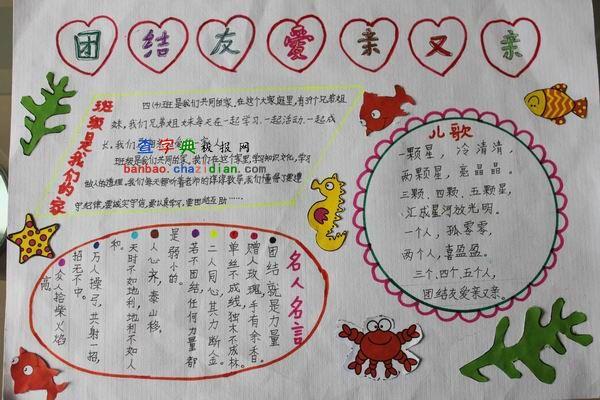 团结友爱亲又亲
班级是我们的家
班是我们共同的家,在这个大家庭里,有39个兄弟姐
妹,我们兄弟姐妹每天在一起学习,一起活动,一起成
长,我们
查字典板报网
班级是我们共同的家,我们在这个家里,学习知识文化,学习
banbao.chazidian.com
做人的道理,我们每天都听着老师的谆谆教导,我们懂得了要遵
守纪律,要诚实守信,要认真学习,要团结互助……
儿歌
一颗星,冷清清,
两颗星,亮晶晶。
三颗、四颗、五颗星,
汇成星河放光明。
一个人,孤零零,
两个人,喜盈盈。
三个,四个,五个人,
团结友爱亲又亲。
名人名言
团结就是力量
赠人玫瑰,手有余香。
单丝不成线,独木不成林。
二人同心,其力断金。
若不团结,任何力量都
是弱小的。
人心齐,泰山移。
天时不如地利,地利不如人
和。
万人操弓,共射一招,
招无不中。
众人拾柴火焰
高。